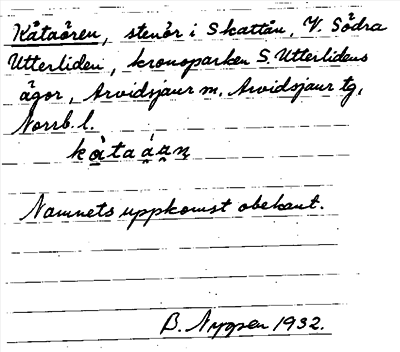 Kåtaören, stenör i Skattån, V. Södra
Utterliden, kronoparken S. Utterlidens
ägor, Arvidsjaur sn, Arvidsjaur tg,
Norrb. l.
Namnets uppkomst obekant.
B. Nygren 1932.